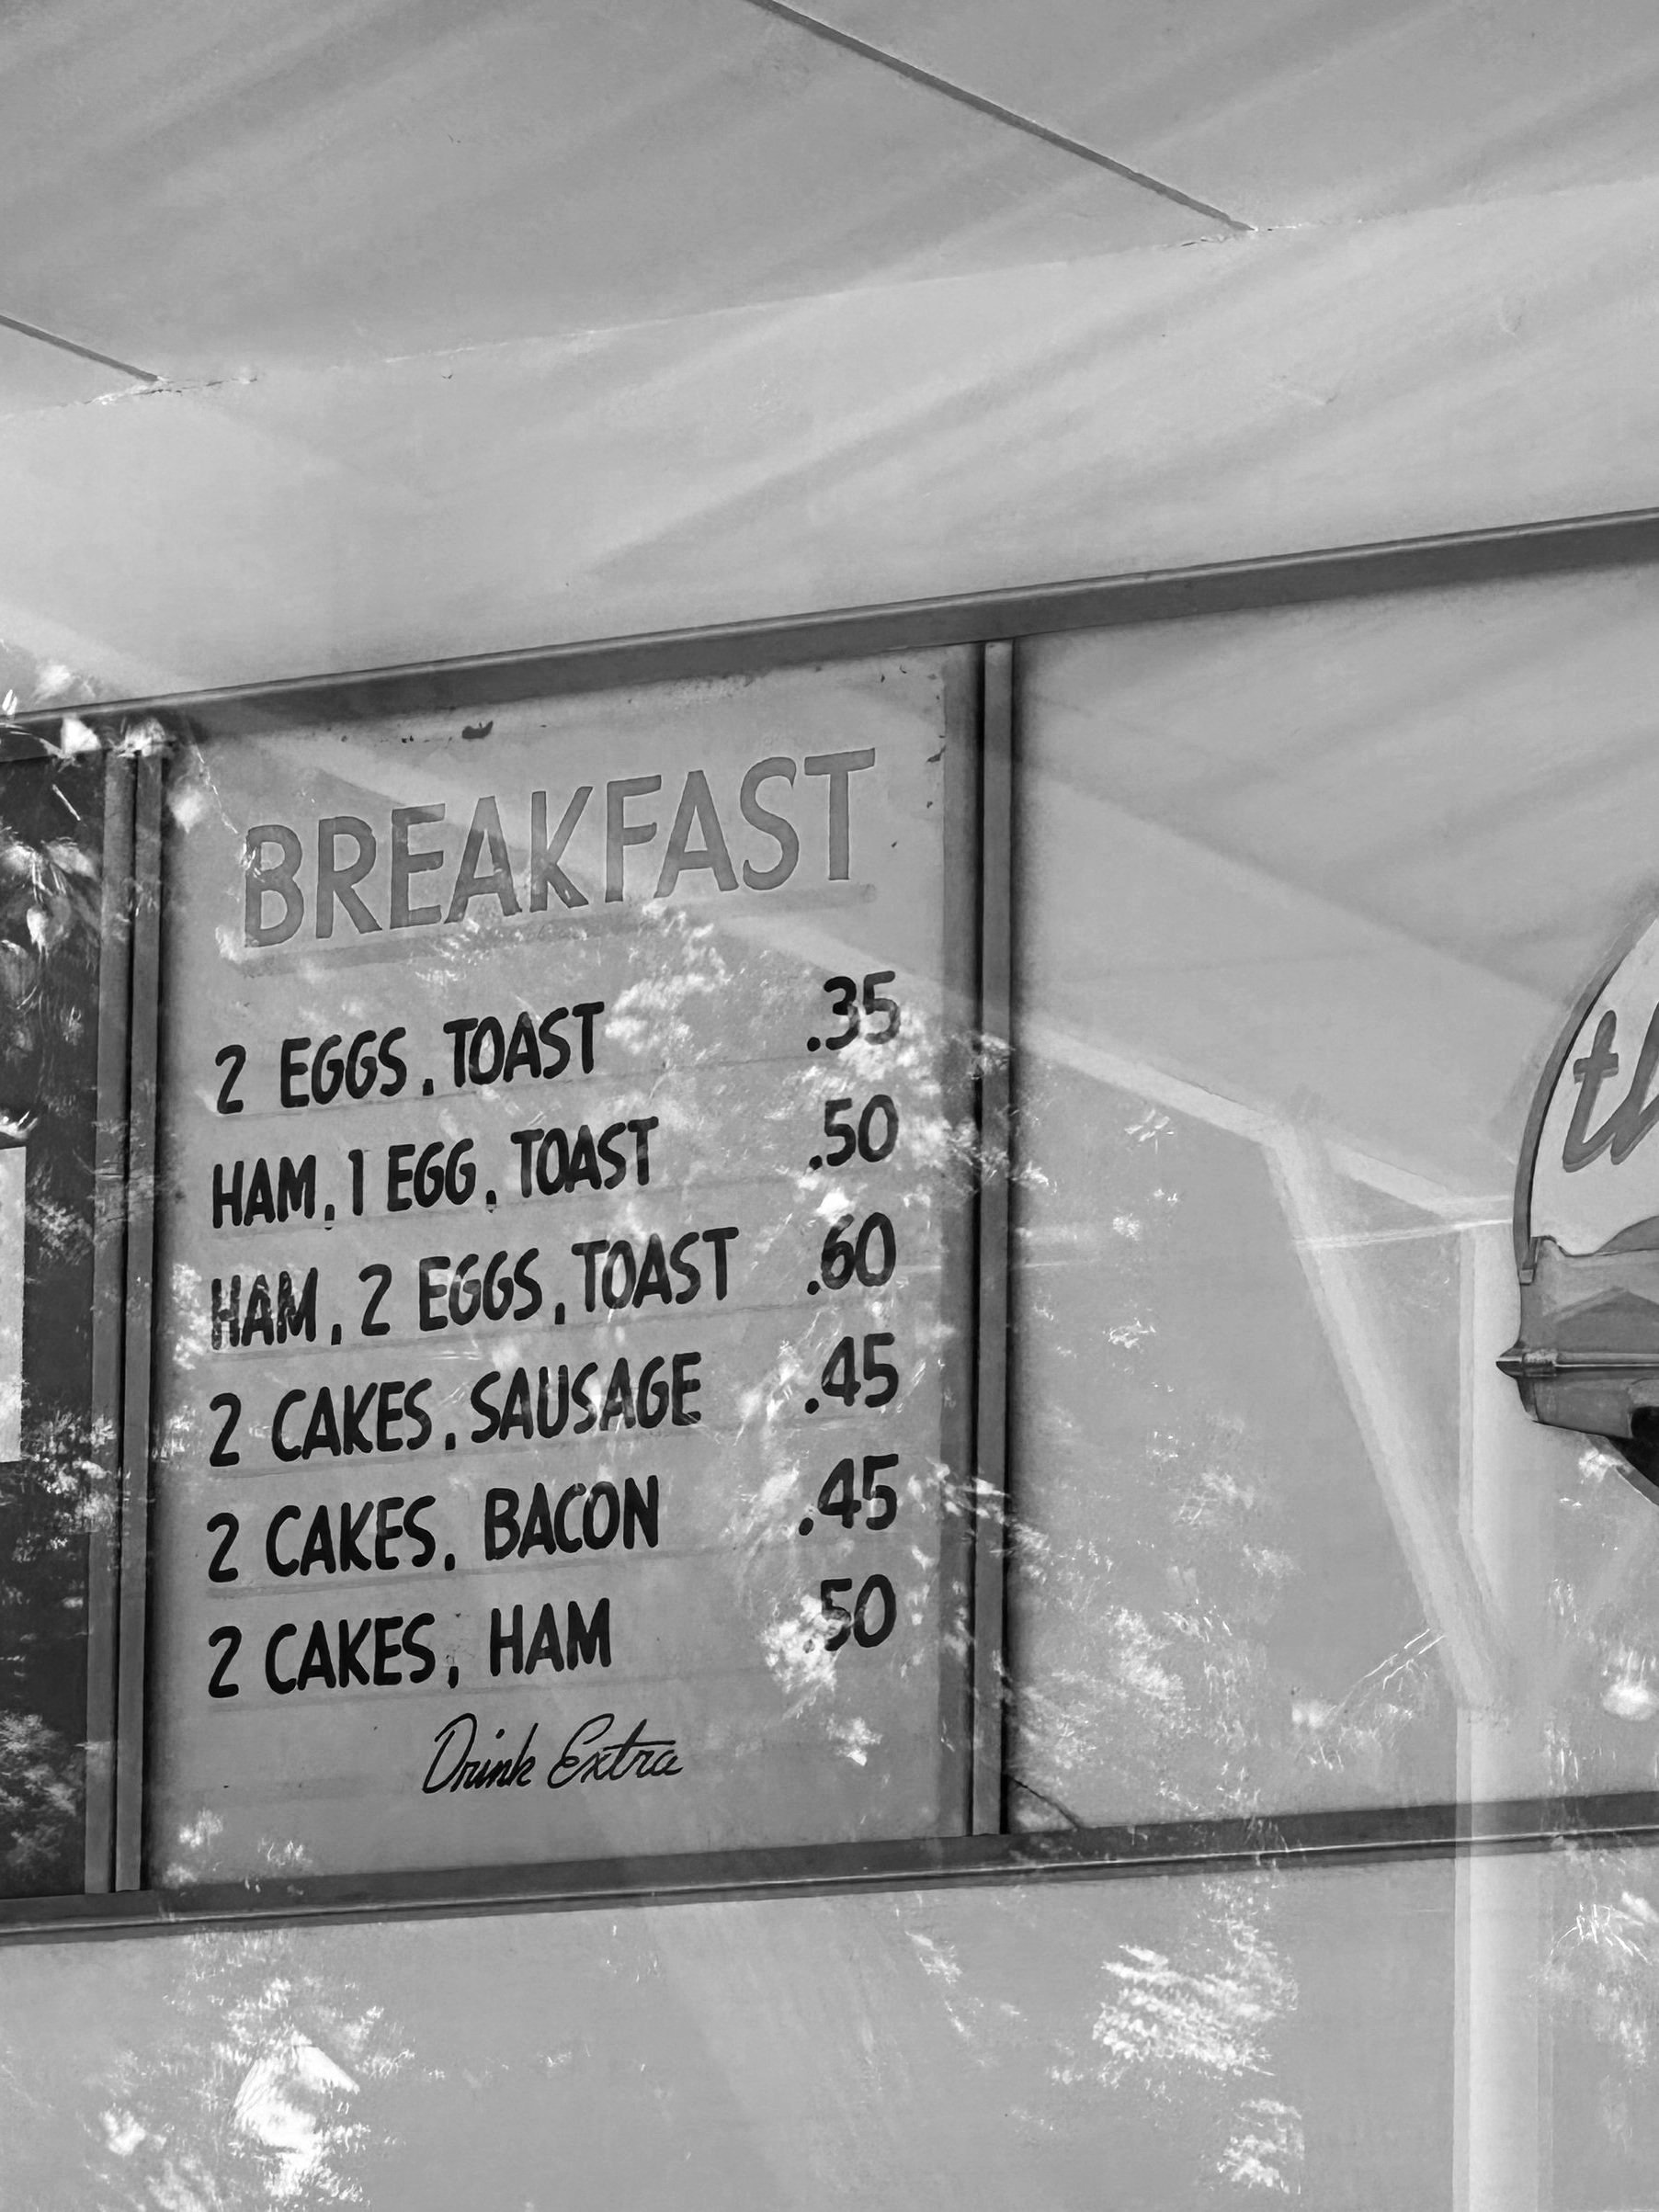 BREAKFAST
2 EGGS, TOAST .35
HAM, 1 EGG, TOAST .50
HAM, 2 EGGS, TOAST .60
2 CAKES, SAUSAGE .45
2 CAKES, BACON .45
2 CAKES, HAM .50
Drink Extra